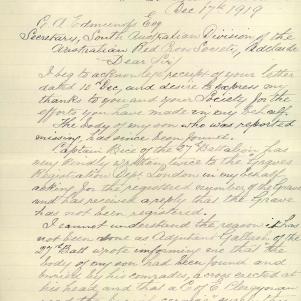 Dec 17th 1919
G. A. Edmunds Esq
Secretary, South Australian Division of the
Australian Red Cross Society, Adelaide
Dear Sir/
I beg to acknowledge receipt of your letter
dated 10th Dec, and desire to express my
thanks to you and your Society for the
efforts you have made in my behalf.
The body of my son who was reported
missing, has since been found.
Captain Rice of the 27 Battalion has
very kindly written twice to the Graves
Registration Dept London in my behalf
asking for the registered number of the Grave
and has received a reply that the Grave
has not been registered.
I cannot understand the reason it has
not been done as Adjutant of the
27th Batt wrote informing me that the
body of my son had been found and
buried by his comrades, a cross erected at
his head, and that a C of E Clergyman